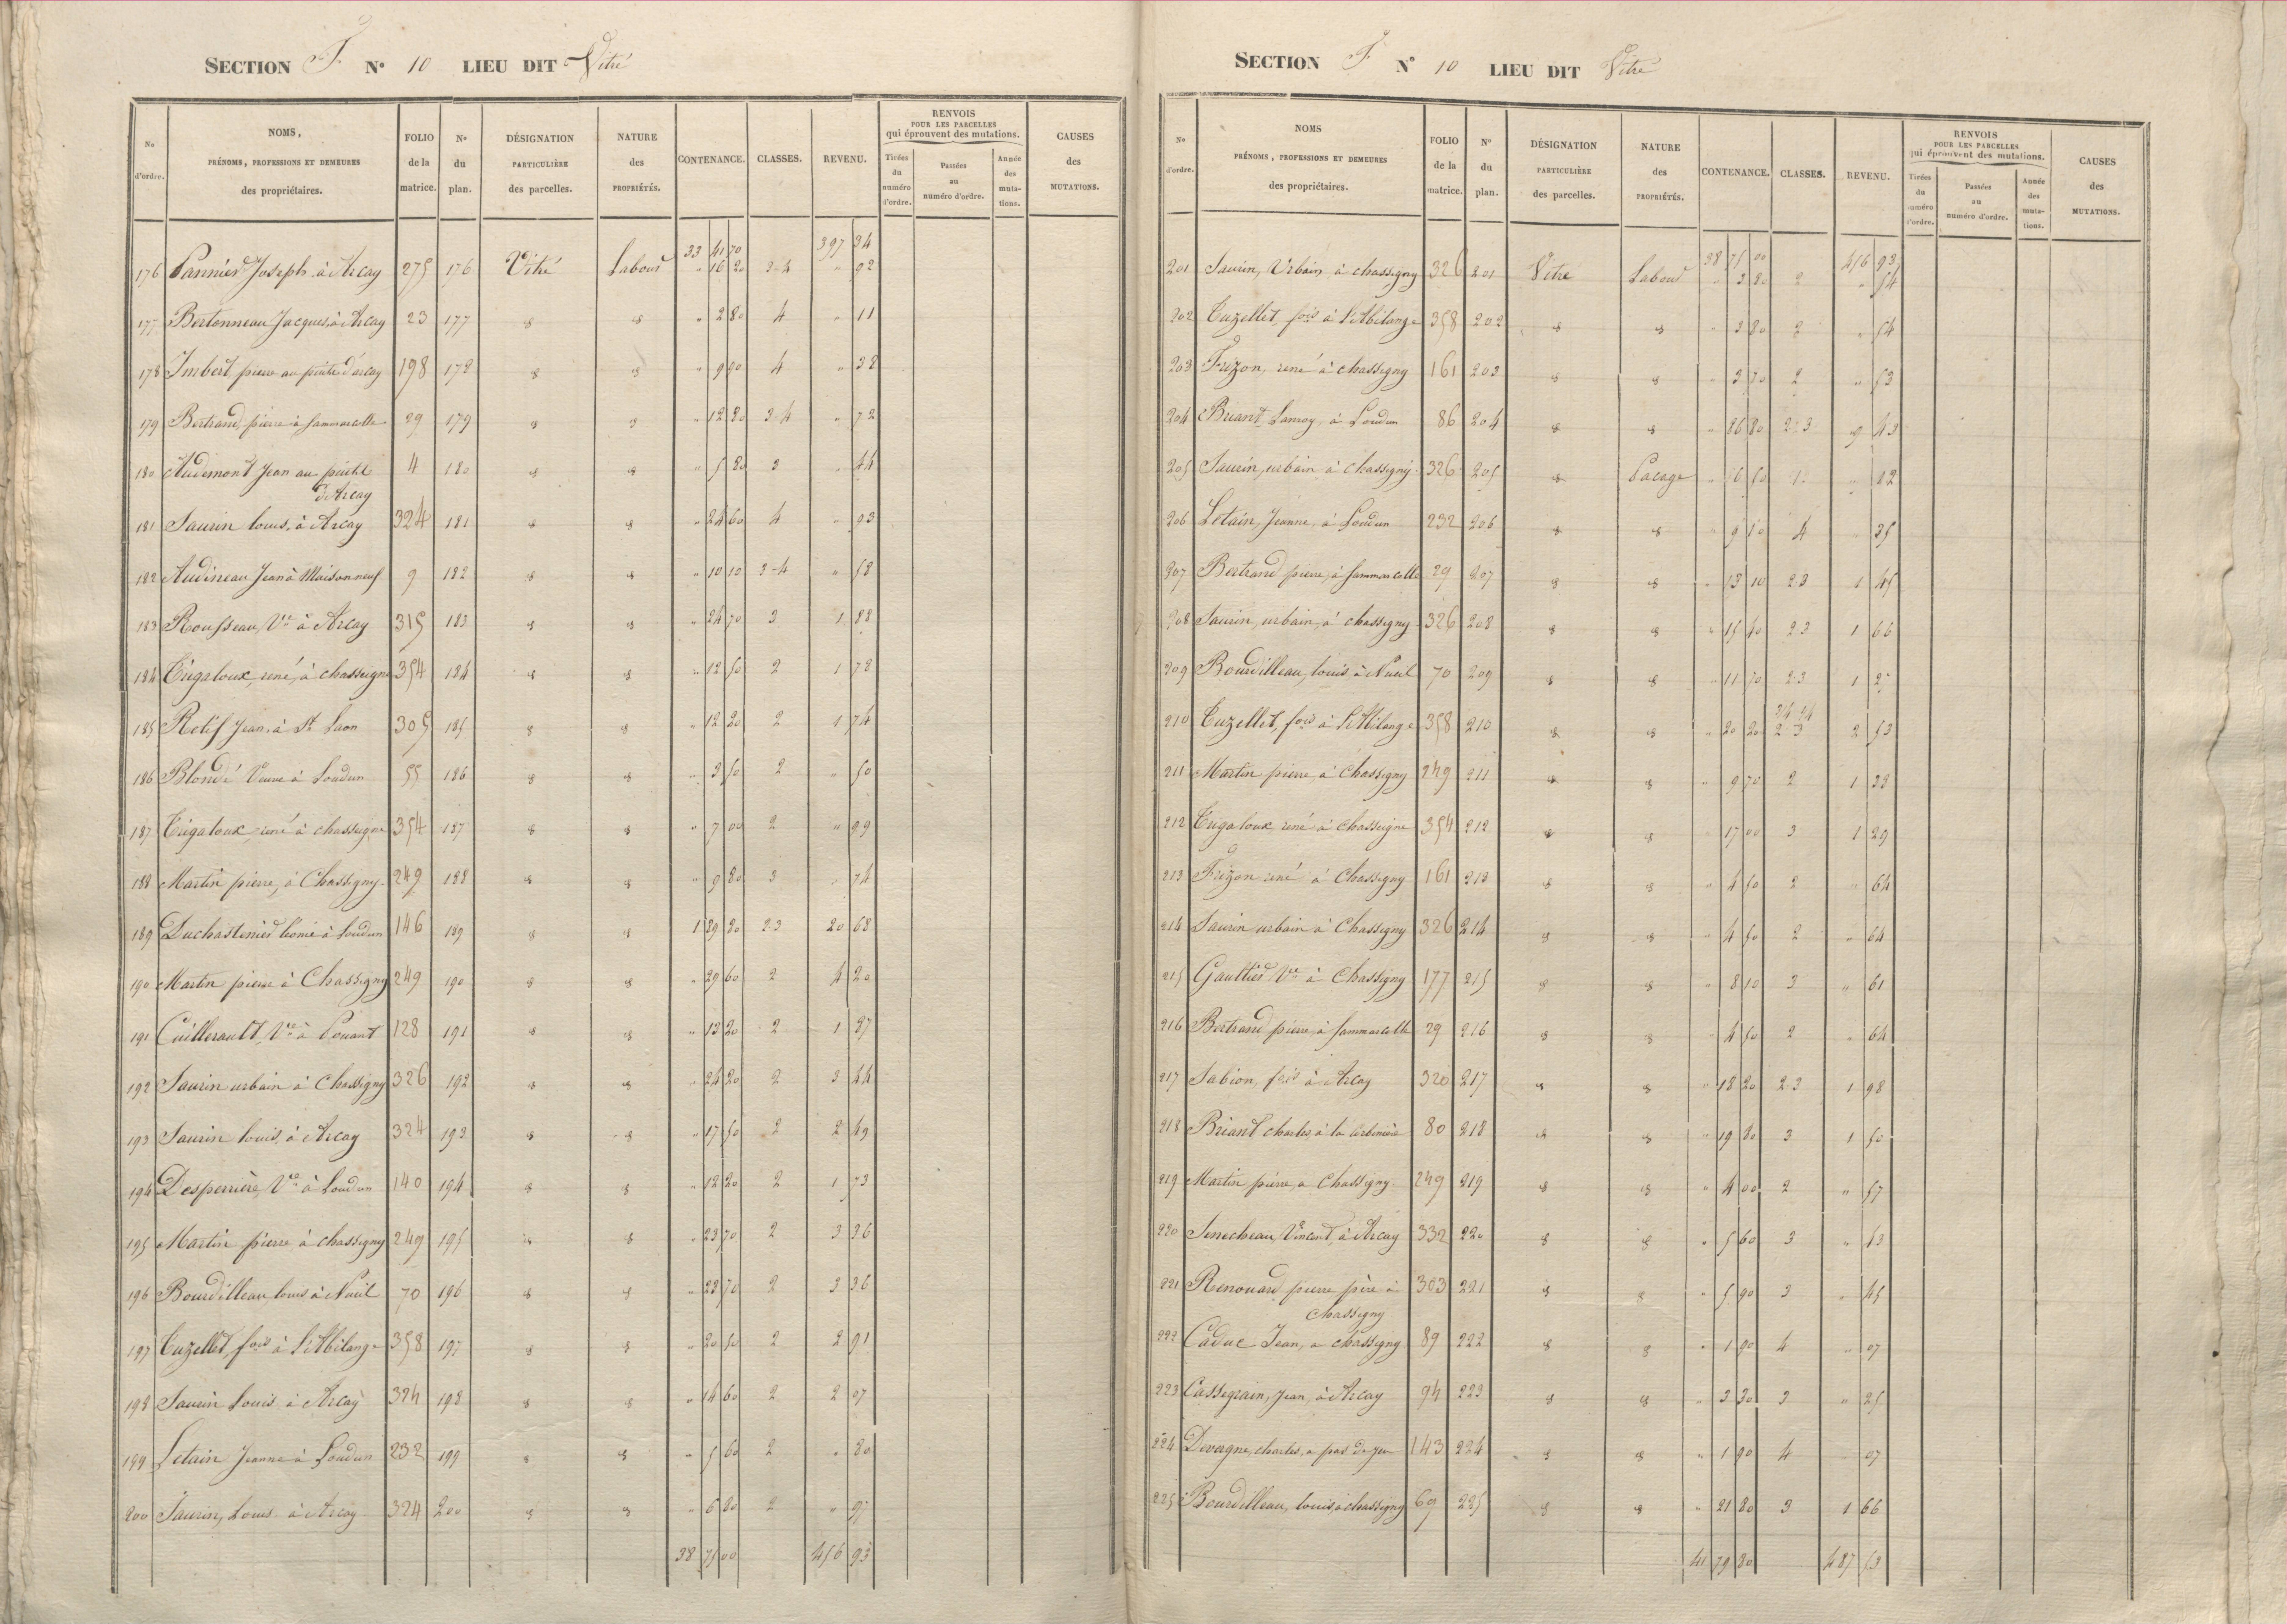 SECTION F. N° 10 LIEU DIT Vitré
No d'ordre. NOMS, PRÉNOMS, PROFESSIONS ET DEMEURES des propriétaires. FOLIO de la matrice. N° du plan. DÉSIGNATION PARTICULIÈRE des parcelles. NATURE des PROPRIÉTÉS. CONTENANCE. CLASSES. REVENU. RENVOIS POUR LES PARCELLES qui éprouvent des mutations. Tirées du numéro d'ordre. Passées au numéro d'ordre. Année des mutations. CAUSES des MUTATIONS.
33 41 70 397 34
176 Pannier Joseph à Arcay 275 176 Vitré Labour " 16 20 3-4 " 92
177 Bertonneau Jacques, à Arcay 23 177 " 2 80 4 " 11
178 Imbert pierre au puits d'arcay 198 178 " 9 90 4 " 38
179 Bertrand, pierre à Sammarcolle 29 179 " 12 80 3-4 " 72
180 Audemont Jean au puits 4 180 " 5 80 3 " 44
d'Arcay
181 Saurin louis, à Arcay 324 181 " 24 60 4 " 93
182 Audineau Jean à Maisonneuf 9 182 " 10 10 3-4 " 58
183 Rousseau, Ve à Arcay 315 183 " 24 70 3 1 88
184 Trigaloux, rené, à chasseigne 354 184 " 12 50 2 1 78
185 Retif Jean, à St Laon 305 185 " 12 20 2 1 74
186 Blondé Veuve à Loudun 55 186 " 3 50 2 " 50
187 Trigaloux, rené à chasseigne 354 187 " 7 00 2 " 99
188 Martin pierre, à Chassigny 249 188 " 9 80 3 " 74
189 Duchastenier leonie à Loudun 146 189 1 89 80 2.3 20 68
190 Martin pierre à Chassigny 249 190 " 29 60 2 4 20
191 Cuillerault, Ve à Pouant 128 191 " 13 20 2 1 87
192 Saurin urbain à Chassigny 326 192 " 24 20 2 3 44
193 Saurin louis, à Arcay 324 193 " 17 50 2 2 49
194 Desperrière, Ve à Loudun 140 194 " 12 20 2 1 73
195 Martin pierre à chassigny 249 195 " 23 70 2 3 36
196 Bourdilleau louis à Nueil 70 196 " 23 70 2 3 36
197 Tuzellet, fois à L'Abilange 358 197 " 20 50 2 2 91
198 Saurin Louis à Arcay 324 198 " 14 60 2 2 07
199 Letain Jeanne à Loudun 232 199 " 5 60 2 " 80
200 Saurin, Louis à Arcay 324 200 " 6 80 2 " 97
38 75 00 456 93
SECTION F N° 10 LIEU DIT Vitré
No d'ordre. NOMS PRÉNOMS, PROFESSIONS ET DEMEURES des propriétaires. FOLIO de la matrice. N° du plan. DÉSIGNATION PARTICULIÈRE des parcelles. NATURE des PROPRIÉTÉS. CONTENANCE. CLASSES. REVENU. RENVOIS POUR LES PARCELLES qui éprouvent des mutations. Tirées du numéro d'ordre. Passées au numéro d'ordre. Année des mutations. CAUSES des MUTATIONS.
38 75 00 456 93
201 Saurin, Urbain, à chassigny 326 201 Vitre Labour " 3 80 2 " 54
202 Tuzellet, fois à L'Abilange 358 202 " 3 80 2 " 54
203 Frézon, rené à chassigny 161 203 " 3 70 2 " 53
204 Briant Lamoy, à Loudun 86 204 " 86 80 2.3 9 43
205 Saurin, urbain à Chassigny 326 205 Pacage " 6 50 1 " 02
206 Letain, Jeanne, à Loudun 232 206 " 9 10 4 " 35
207 Bertrand pierre, à Sammarcolle 29 207 " 13 10 2 3 1 45
208 Saurin, urbain, à chassigny 326 208 " 15 40 2 3 1 66
209 Bourdilleau, louis, à Nueil 70 209 " 11 70 2.3 1
210 Tuzellet, fois à L'Abilange 358 210 " 20 20 2 3 2 53
211 Martin pierre, à Chassigny 249 211 " 9 70 2 1 38
212 Trigaloux, rené à Chasseigne 354 212 " 17 00 3 1 29
213 Frézon rené à Chassigny 161 213 " 4 50 2 " 64
214 Saurin urbain à Chassigny 326 214 " 4 50 2 " 64
215 Gaultier Ve à Chassigny 177 215 " 8 10 3 " 61
216 Bertrand pierre, à Sammarcolle 29 216 " 4 50 2 " 64
217 Sabion, fois à Arcay 320 217 " 18 20 2.3 1 98
218 Briant charles, à la 80 218 " 19 80 3 1 50
219 Martin pierre, a Chassigny 249 219 " 4 00 2 " 57
220 Senecheau, Vincent, à Arcay 332 220 " 5 60 3 " 43
221 Renouard pierre père à 303 221 " 5 90 3 " 45
Chassigny
222 Caduc Jean, a chassigny 89 222 " 1 90 4 " 07
223 Cassegrain, Jean, à Arcay 94 223 " 3 30 3 " 25
224 Devergne, charles, a pas de jeu 143 224 " 1 90 4 07
225 Bourdilleau, louis, à chassigny 69 225 " 21 80 3 1 66
41 79 80 487 53